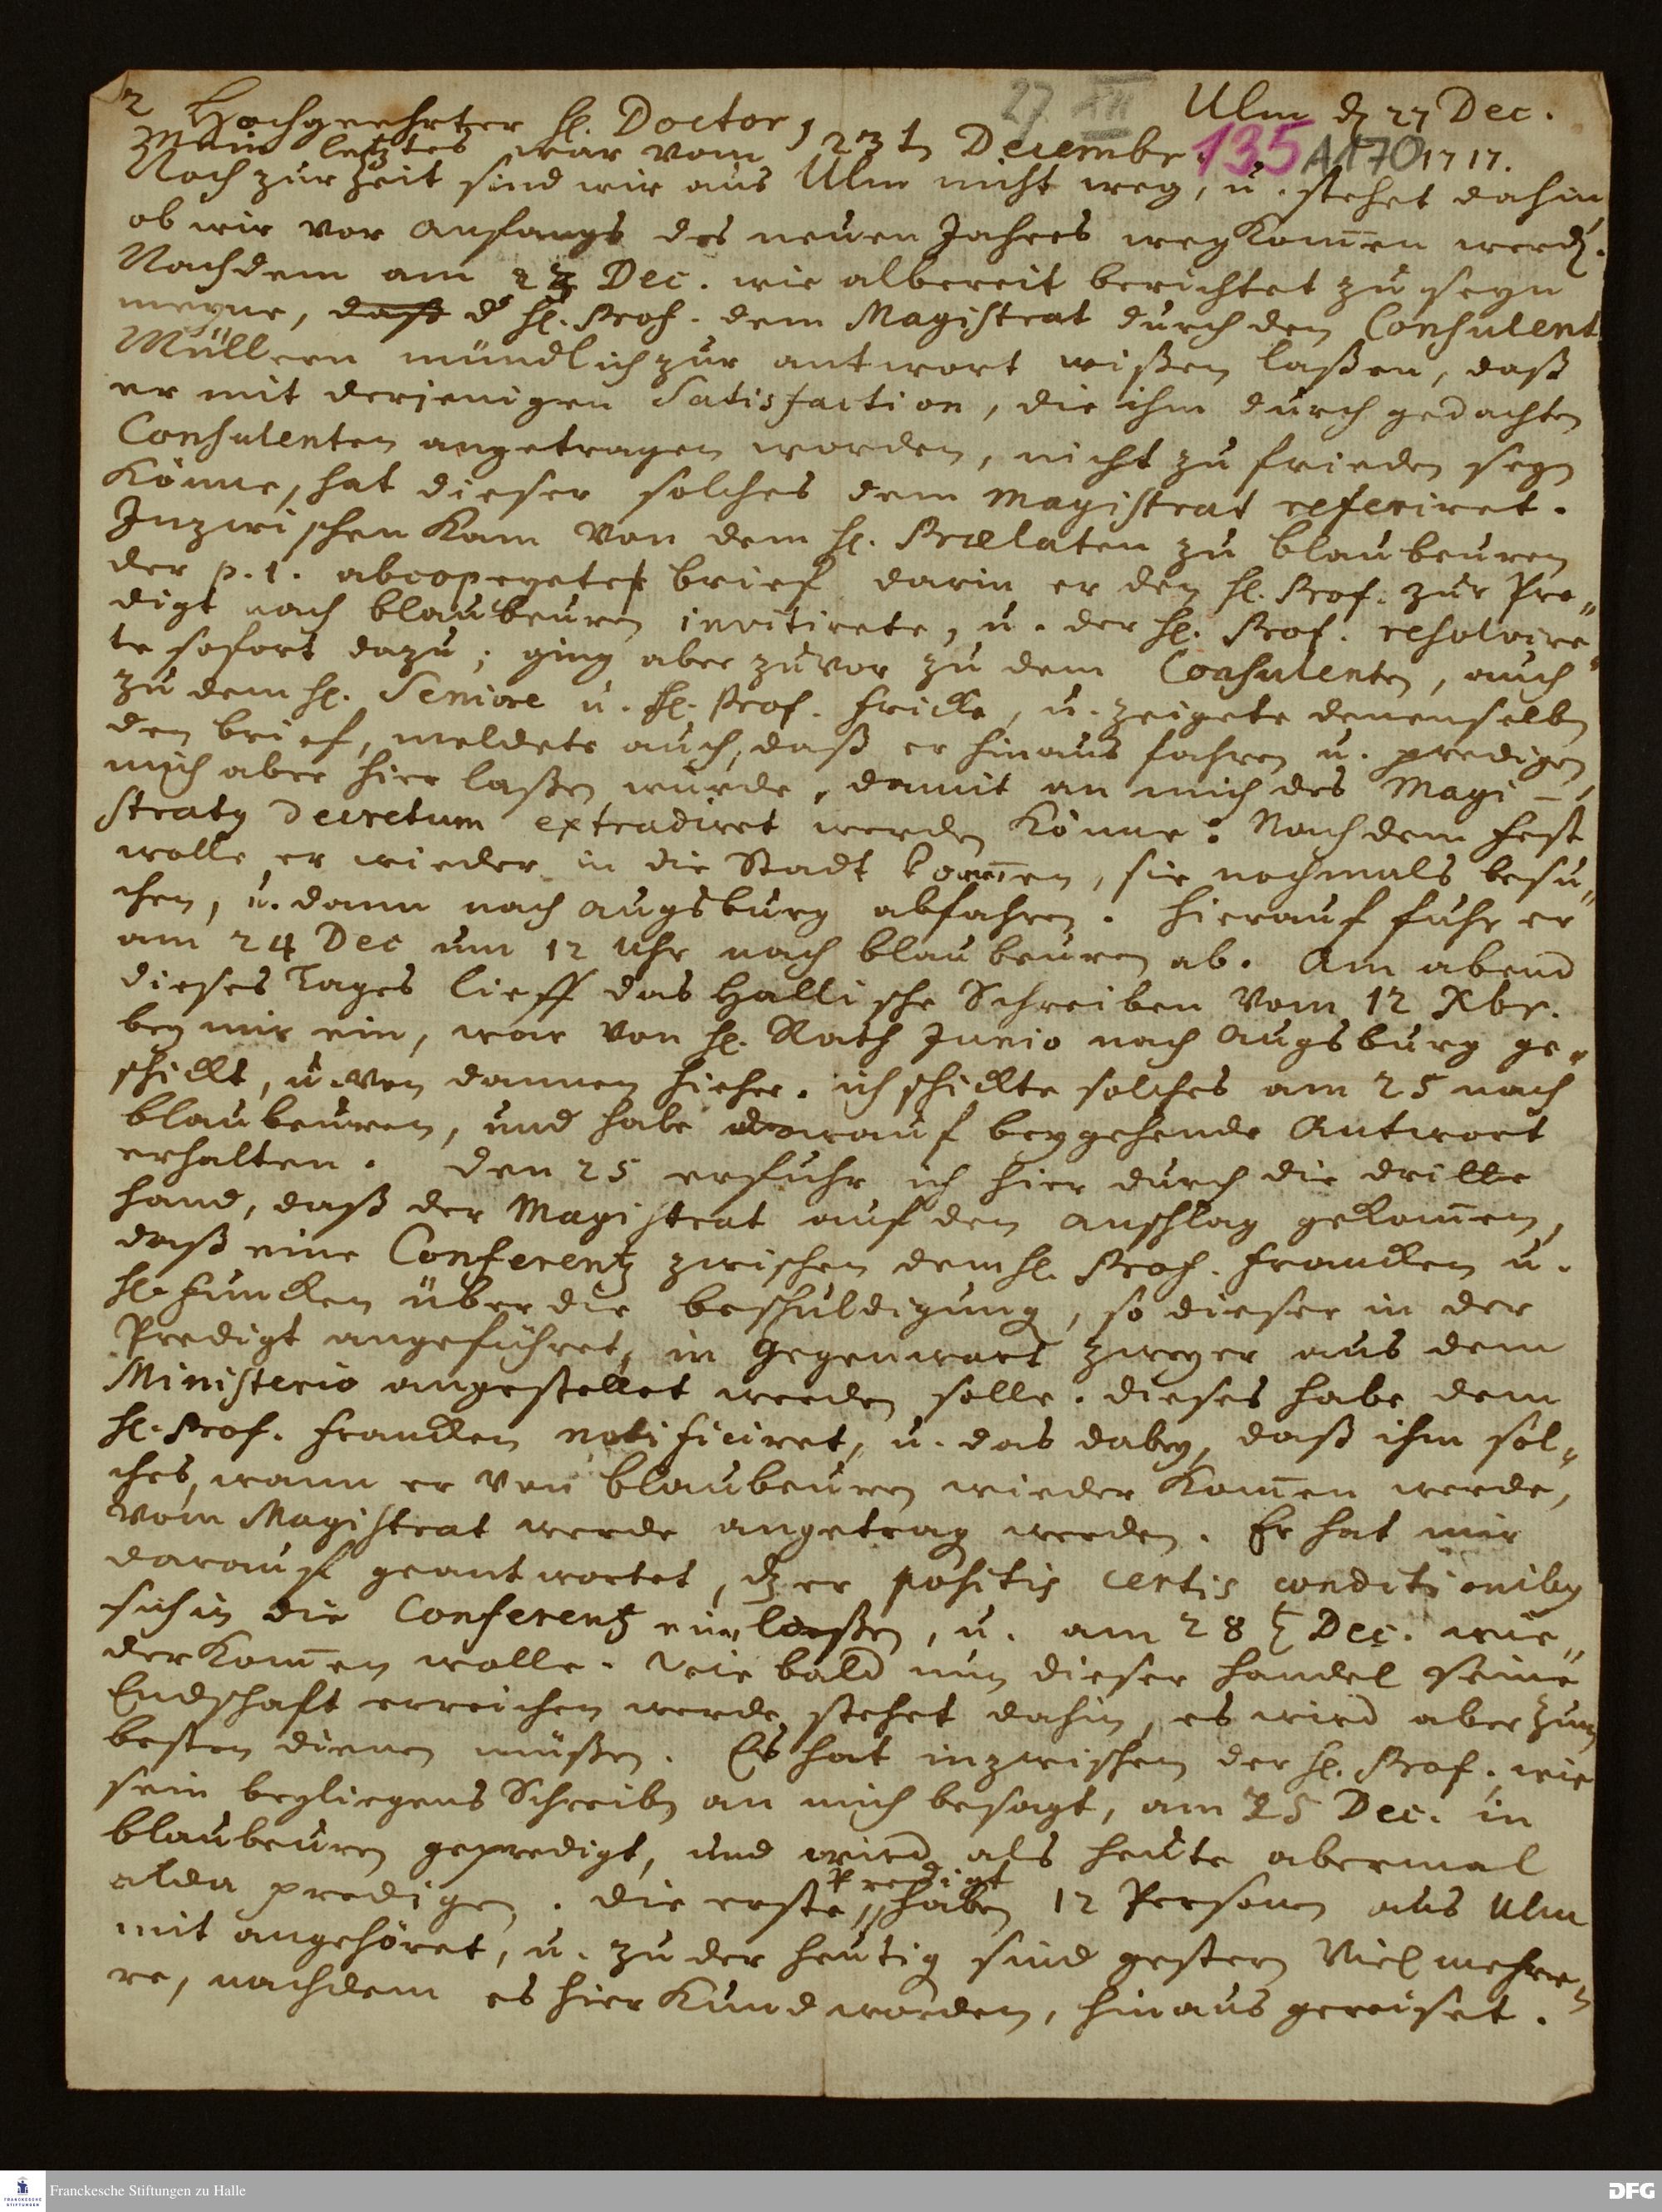 27. XII
Ulm d 27 Dec.
135 A 170 1717.
2 Hochgeehrter H. Doctor,
Mein letztes war vom 23t Decembr.
Noch zur Zeit sind wir aus Ulm nicht weg, u. stehet dahin
ob wir vor Anfangs des neuen Jahres wegkom̄en werd.
Nachdem am 23 Dec. wie albereit berichtet zu seyn
meyne, daß d H. Prof. dem Magistrat durch den Consulent
Müllern mündlich zur antwort wißen laßen, daß
er mit derjenigen Satisfaction, die ihm durch gedachten
Consulenten angetragen worden, nicht zu frieden seyn
könne, hat dieser solches dem Magistrat referiret.
Inzwischen kam von dem H. Prælaten zu blaubeuren
der p. 1. abcopeyete brief darin er den H. Prof. zur Pre„
digt nach blaubeuren invitirete, u. der H. Prof. resolvire„
te sofort dazu; ging aber zuvor zu dem Consulenten, auch
zu dem H. Seniore u. H. Prof. Fricke, u. zeigete denenselben
den brief, meldete auch, daß er hinaus fahren u. predigen,
mich aber hier laßen würde, damit an mich des Magi-
strats Decretum extradiret werden könne: Nach dem Fest
wolle er wieder in die Stadt kom̄en, sie nochmals besu„
chen, u. dann nach Augsburg abfahren. Hierauf fuhr er
am 24 Dec um 12 Uhr nach blaubeuren ab. Am abend
dieses Tages lieff das Hallische Schreiben vom 12 Xbr.
bey mir ein, war von H. Rath Junio nach Augsburg ge„
schickt, u. von dannen hieher. ich schickte solches am 25 nach
blaubeuren, und habe darauf beygehende Antwort
erhalten. Den 25 erfuhr ich hier durch die dritte
Hand, daß der Magistrat auf den anschlag gekom̄en,
daß eine Conferentz zwischen dem H. Prof. Francken u.
H. Funcken über die beschuldigung, so dieser in der
Predigt angeführet, in Gegenwart zweyer aus dem
Ministerio angestellet werden solle. Dieses habe dem
H. Prof. Francken notificiret, u. das dabey, daß ihm sol„
ches, wann er von blaubeuren wieder kom̄en werde,
vom Magistrat werde angetrag werden. Er hat mir
darauf geantwortet, dz er positis certis conditionibus
sich in die Conferentz einlaßen, u. am 28 t Dec. wie„
derkom̄en wolle. Wie bald nun dieser Handel seine
Endschaft erreichen werde, stehet dahin, es wird aber zum
besten dienen müßen. Es hat inzwischen der H. Prof. wie
sein beyliegens Schreiben an mich besagt, am 25 Dec. in
blaubeuren geprediget, und wird als heute abermal
alda predigen. Die erste Predigt haben 12 Personen aus Ulm
mit angehöret, u. zu der heutig sind gestern viel mehre„
re, nachdem es hier kund worden, hinaus gereiset.
Franckesche Stiftungen zu Halle
DFG